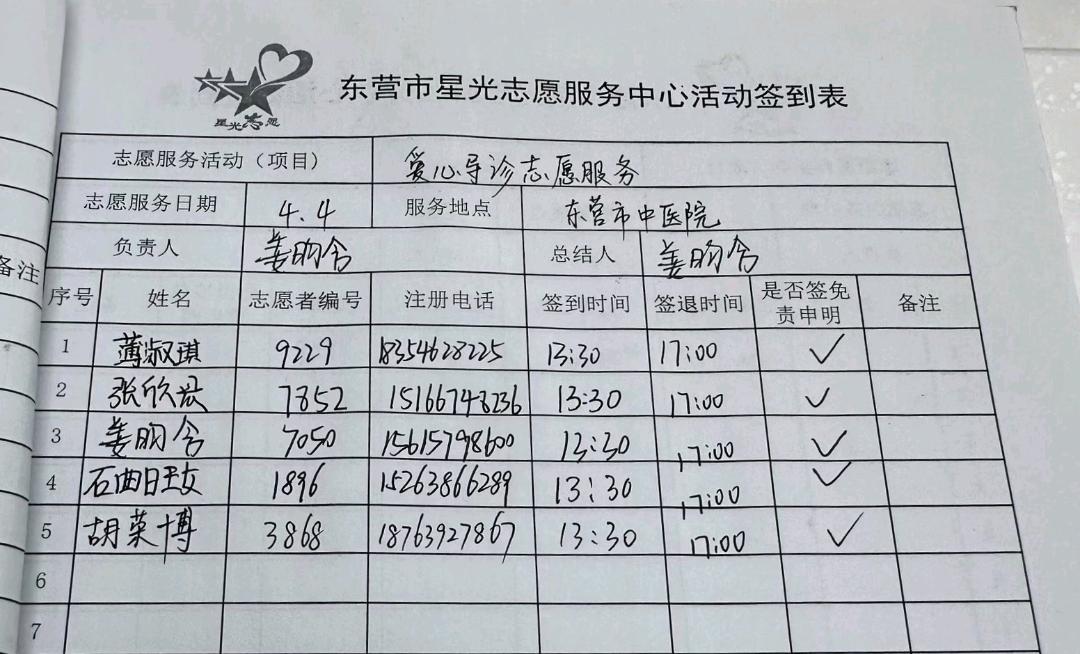 星光志愿
东营市星光志愿服务中心活动签到表
志愿服务活动（项目） 爱心导诊志愿服务
志愿服务日期 4.4 服务地点 东营市中医院
负责人 姜昀含 总结人 姜昀含
备注
序号 姓名 志愿者编号 注册电话 签到时间 签退时间 是否签免责申明 备注
1 薄淑琪 9229 18354628225 13:30 17:00 ✓
2 张欣 7852 15166748236 13:30 17:00 ✓
3 姜昀含 7050 15615798600 13:30 17:00 ✓
4 石曲 1896 15263866289 13:30 17:00 ✓
5 胡莱博 3868 18763927867 13:30 17:00 ✓
6
7